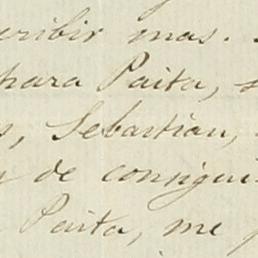 cribir mas.
para Paita,
Sebastian,
de consigui
Paita, me